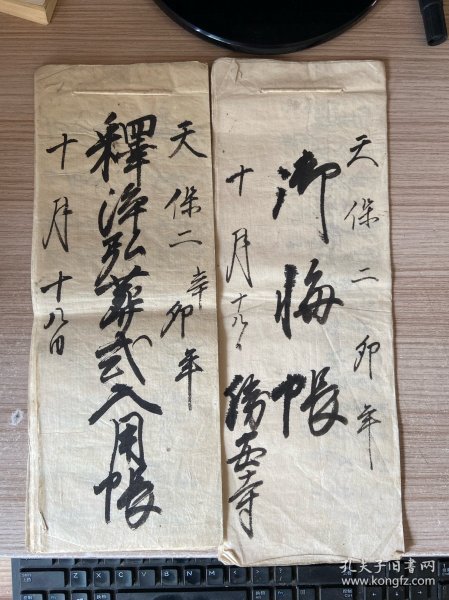 天保二卯年
御悔帳
十月十八日
西寺
天保二辛卯年
釋浄弘葬式入用帳
十月十八日
孔夫子旧书网
www.kongfz.com